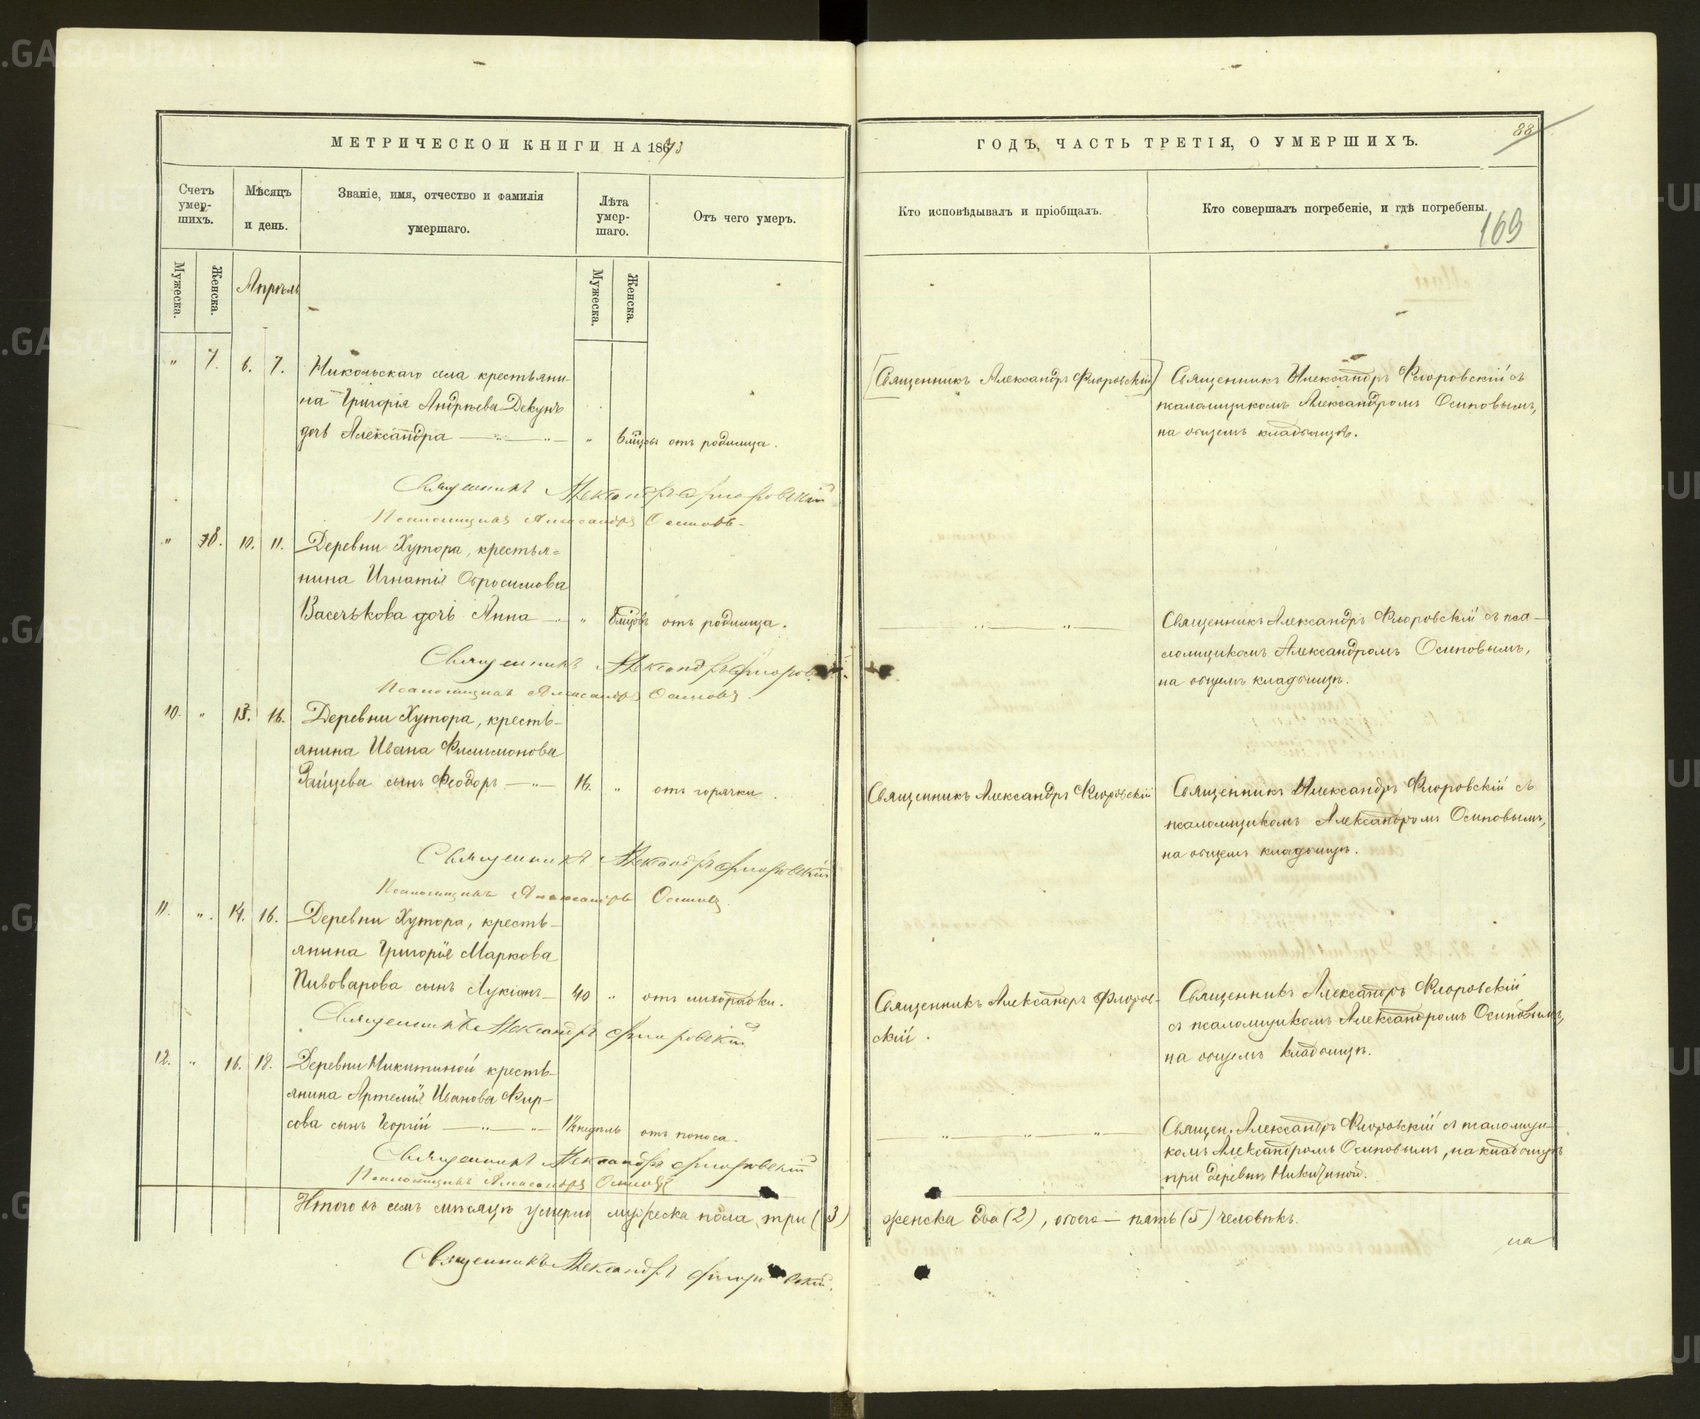 МЕТРИЧЕСКОЙ КНИГИ НА 1873
ГОДЪ, ЧАСТЬ ТРЕТІЯ, О УМЕРШИХЪ.
88
169
Счетъ умер-шихъ.
Мѣсяцъ и день.
Званіе, имя, отчество и фамилія умершаго.
Лѣта умер-шаго.
Отъ чего умеръ.
Кто исповѣдывалъ и пріобщалъ.
Кто совершалъ погребеніе, и гдѣ погребены.
Мужеска.
Женска.
Мужеска.
Женска.
Апрѣль
" 7. 6. 7.
Никольскаго села крестьяни-
на Григорія Андрѣева Декунъ
дочь Александра — " —
" 6 мѣсяц. отъ родимца.
[Священникъ Александръ Флоровскій]
Священникъ Александръ Флоровскій съ
псаломщикомъ Александромъ Осиповымъ,
на общемъ кладбищѣ.
Священникъ Александръ Флоровскій
Псаломщикъ Александръ Осиповъ.
" 8. 10. 11.
Деревни Хутора, крестья=
нина Игнатія Обросимова
Васечькова дочь Анна — "
отъ родимца.
Священникъ Александръ Флоровскій съ пса-
ломщикомъ Александромъ Осиповымъ,
на общемъ кладбищѣ.
Священникъ Александръ Флоровскій
Псаломщикъ Александръ Осиповъ
10. " 13. 16.
Деревни Хутора, кресть-
янина Ивана Филимонова
Зайцева сынъ Феодоръ — " —
16. " отъ горячки.
Священникъ Александръ Флоровскій
Священникъ Александръ Флоровскій съ
псаломщикомъ Александромъ Осиповымъ,
на общемъ кладбищѣ.
Священникъ Александръ Флоровскій
Псаломщикъ Александръ Осиповъ
11. " 14. 16.
Деревни Хутора, кресть-
янина Григорія Маркова
Пивоварова сынъ Лукіанъ —
40 " отъ лихорадки.
Священникъ Александръ Флоров-
скій.
Священникъ Александръ Флоровскій
съ псаломщикомъ Александромъ Осиповымъ,
на общемъ кладбищѣ.
Священникъ Александръ Флоровскій
12. " 16. 18.
Деревни Никитиной кресть-
янина Артемія Иванова Фир-
сова сынъ Георгій — " —
недѣль отъ поноса.
Священ. Александръ Флоровскій съ псаломщи-
комъ Александромъ Осиповымъ, на кладбищѣ
при деревнѣ Никитиной.
Священникъ Александръ Флоровскій
Псаломщикъ Александръ Осиповъ
Итого въ семъ мѣсяцѣ умерло мужеска пола три (3)
женска два (2), обоего — пять (5) человѣкъ.
Священникъ Александръ Флоровскій.
METRIKI.GASO-URAL.RU